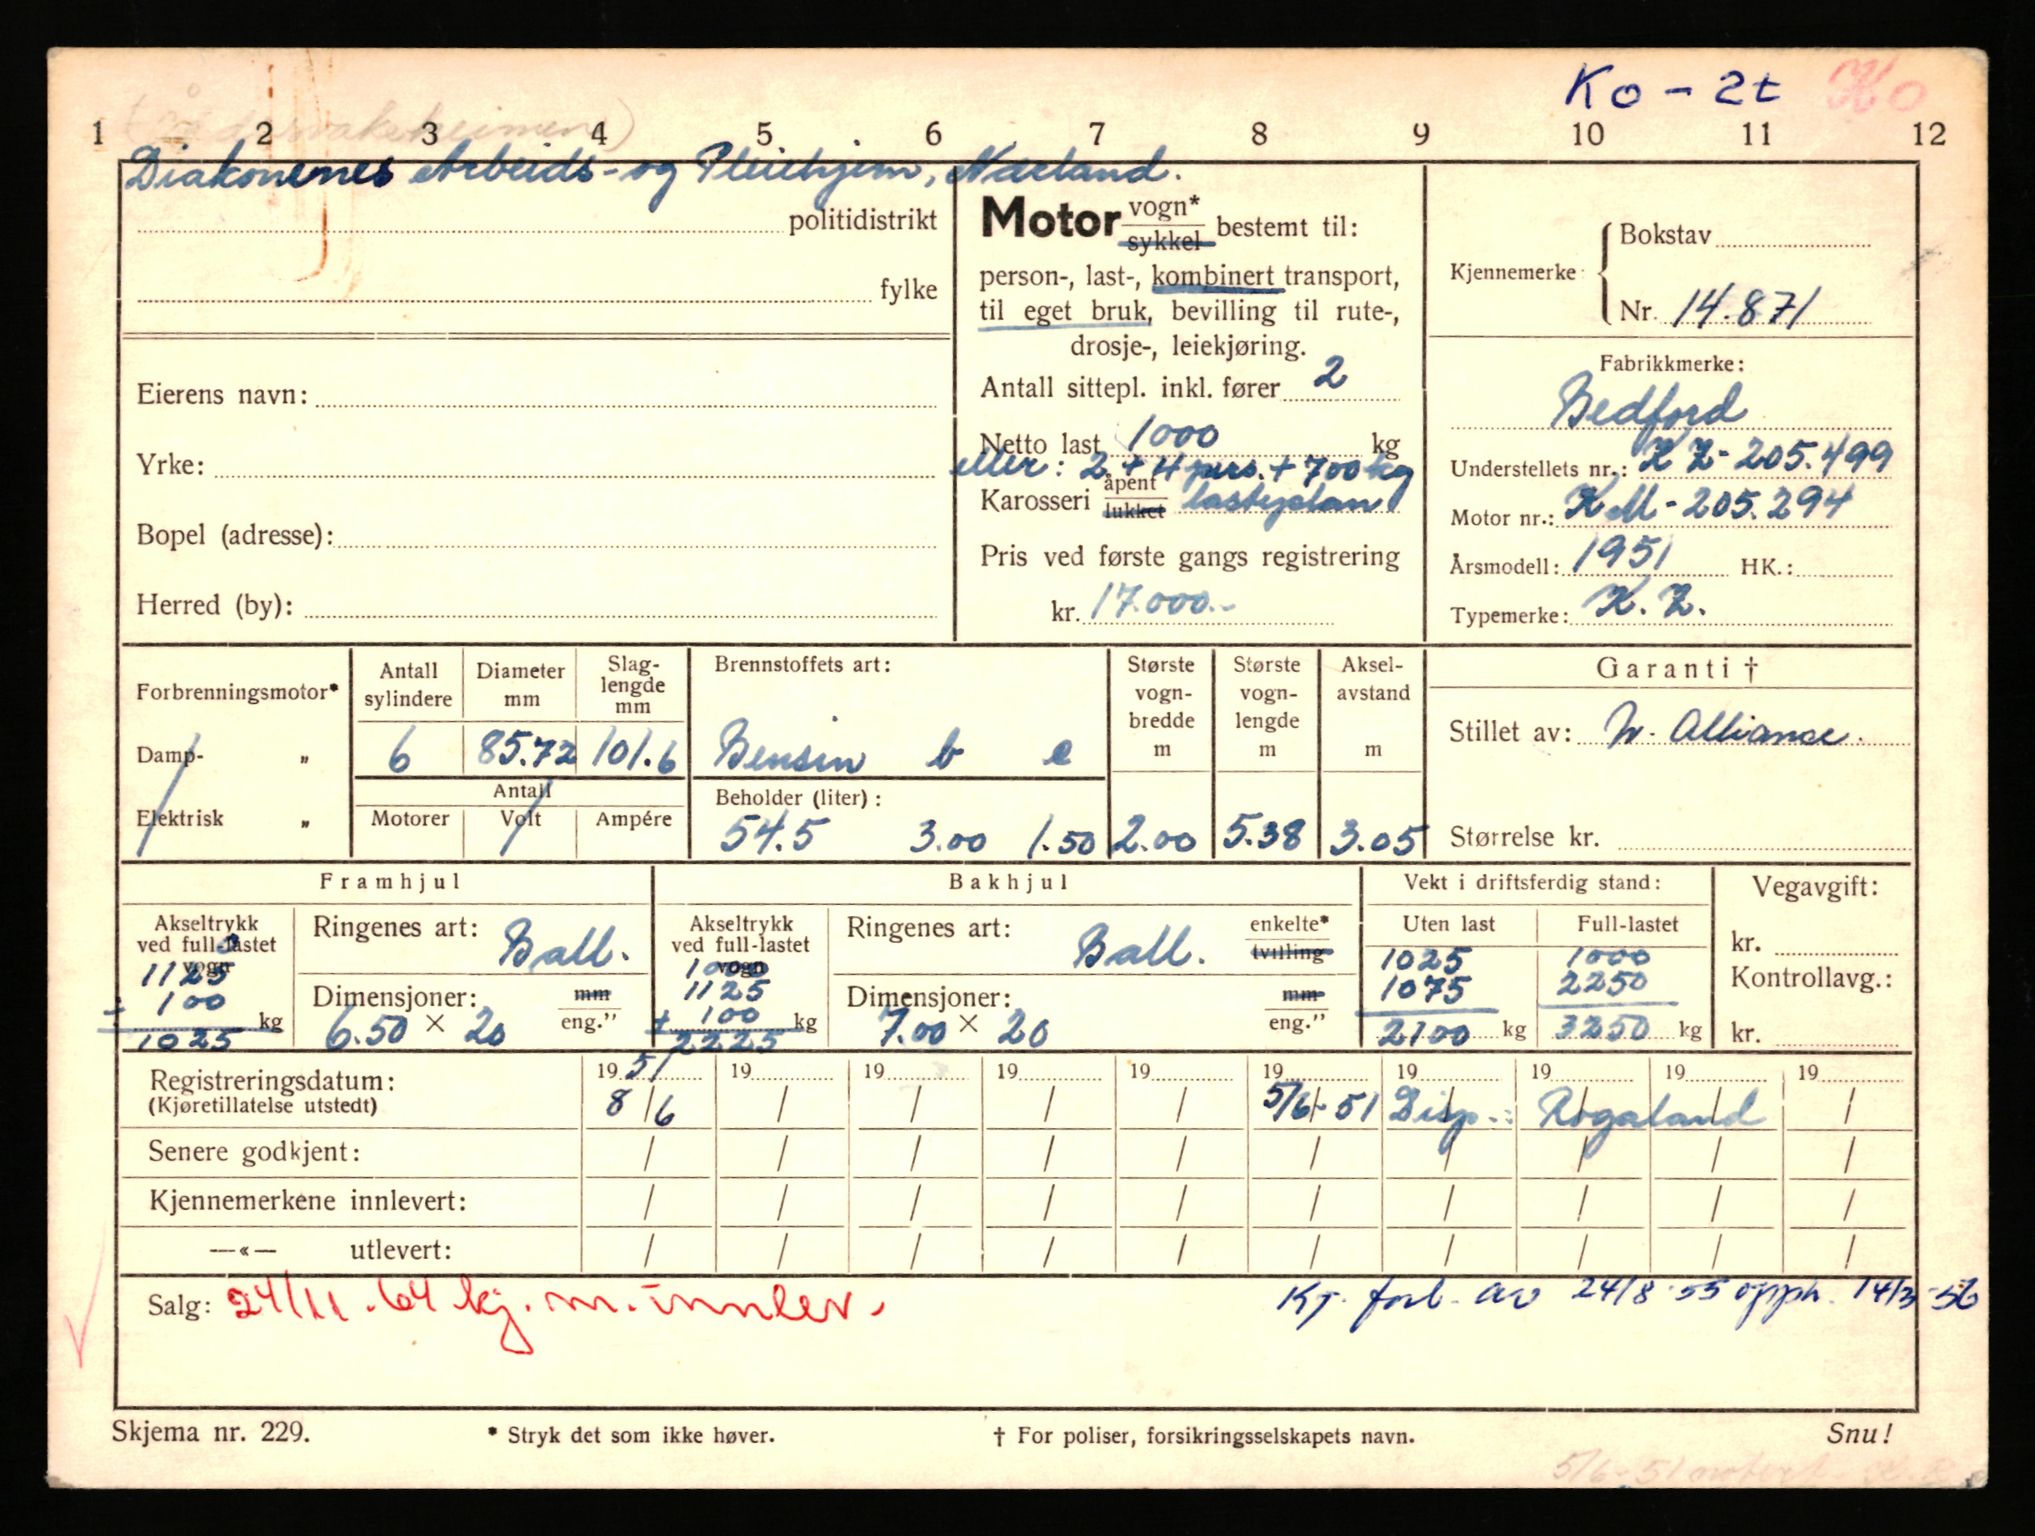 Ko - 2t Ko
1 2 3 4 5 6 7 8 9 10 11 12
Diakonenes Arbeids- og Pleiehjem, Nærland.
politidistrikt
fylke
Eierens navn:
Yrke:
Bopel (adresse):
Herred (by):
Motor vogn*
sykkel bestemt til:
person-, last-, kombinert transport,
til eget bruk, bevilling til rute-,
drosje-, leiekjøring.
Antall sittepl. inkl. fører 2
Netto last 1000 kg
eller: 2 + 4 pers. + 700 kg
Karosseri åpent
lukket lasteplan
Pris ved første gangs registrering
kr. 17.000.-
Kjennemerke
Bokstav
Nr. 14.871
Fabrikkmerke:
Bedford
Understellets nr.: KZ-205.499
Motor nr.: KM-205.294
Årsmodell: 1951 HK.:
Typemerke: K.Z.
Forbrenningsmotor*
Damp- „
Elektrisk „
Antall sylindere
6
Diameter mm
85.72
Slag-
lengde
mm
101.6
Antall
Motorer Volt Ampére
Brennstoffets art:
Bensin b e
Beholder (liter):
54.5 3.00 1.50
Største
vogn-
bredde
m
2.00
Største
vogn-
lengde
m
5.38
Aksel-
avstand
m
3.05
Garanti †
Stillet av: N. Alliance.
Størrelse kr.
Framhjul
Akseltrykk
ved full-lastet
vogn
1125
÷ 100 kg
1025
Ringenes art: Ball.
Dimensjoner: mm
6.50 × 20 eng.”
Bakhjul
Akseltrykk
ved full-lastet
vogn
1000
1125
+ 100 kg
2225
Ringenes art: Ball. enkelte*
tvilling
Dimensjoner: mm
7.00 × 20 eng.”
Vekt i driftsferdig stand:
Uten last
1025
1075
2100 kg
Full-lastet
1000
2250
3250 kg
Vegavgift:
kr.
Kontrollavg.:
kr.
Registreringsdatum: 1951 19 19 19 19 19 19 19 19 19
(Kjøretillatelse utstedt) 8/6 / / / / 5/6-51 Disp.: Rogaland /
Senere godkjent: / / / / / / / / / /
Kjennemerkene innlevert: / / / / / / / / / /
—«— utlevert: / / / / / / / / / /
Salg: 24/11.-64 kj. m. innlev.
Kj. forb. av 24/8-55 opph. 14/3-56
Skjema nr. 229.
* Stryk det som ikke høver.
† For poliser, forsikringsselskapets navn.
Snu!
5/6-51